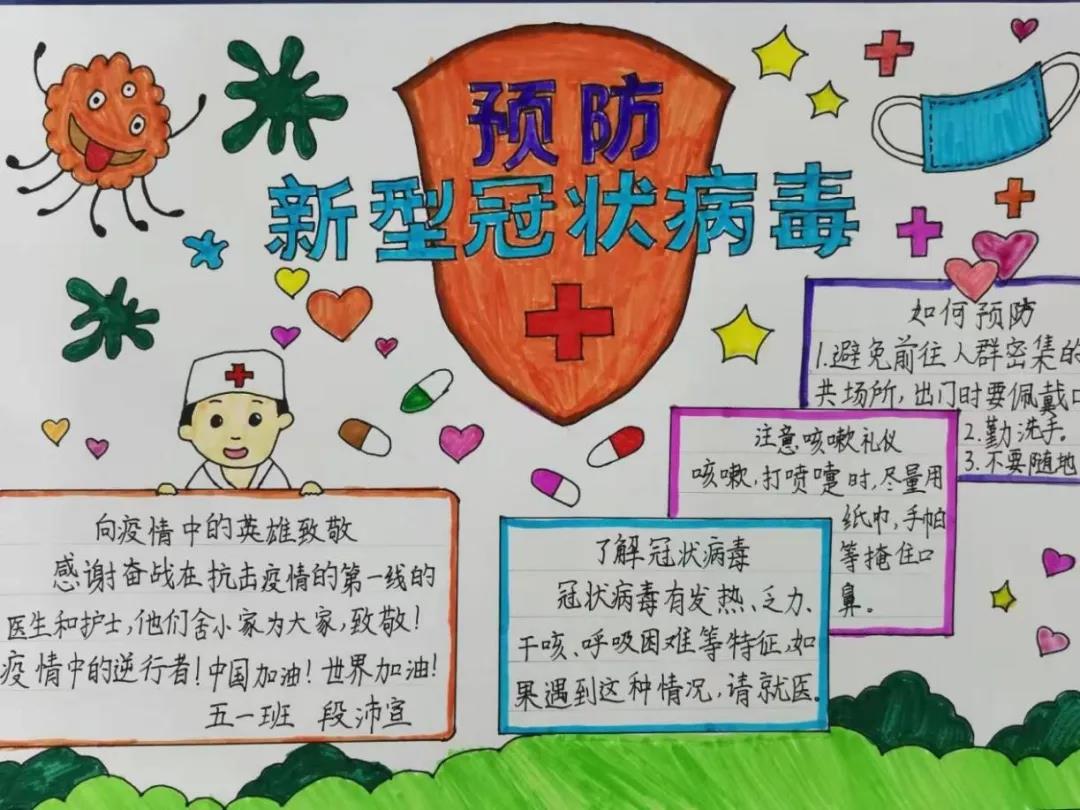 预防
新型冠状病毒
如何预防
1.避免前往人群密集的
共场所,出门时要佩戴口
2.勤洗手。
3.不要随地
注意咳嗽礼仪
咳嗽,打喷嚏时,尽量用
纸巾,手帕
等掩住口
鼻。
了解冠状病毒
冠状病毒有发热、乏力、
干咳、呼吸困难等特征,如
果遇到这种情况,请就医。
向疫情中的英雄致敬
感谢奋战在抗击疫情的第一线的
医生和护士,他们舍小家为大家,致敬!
疫情中的逆行者!中国加油!世界加油!
五一班 段沛宣